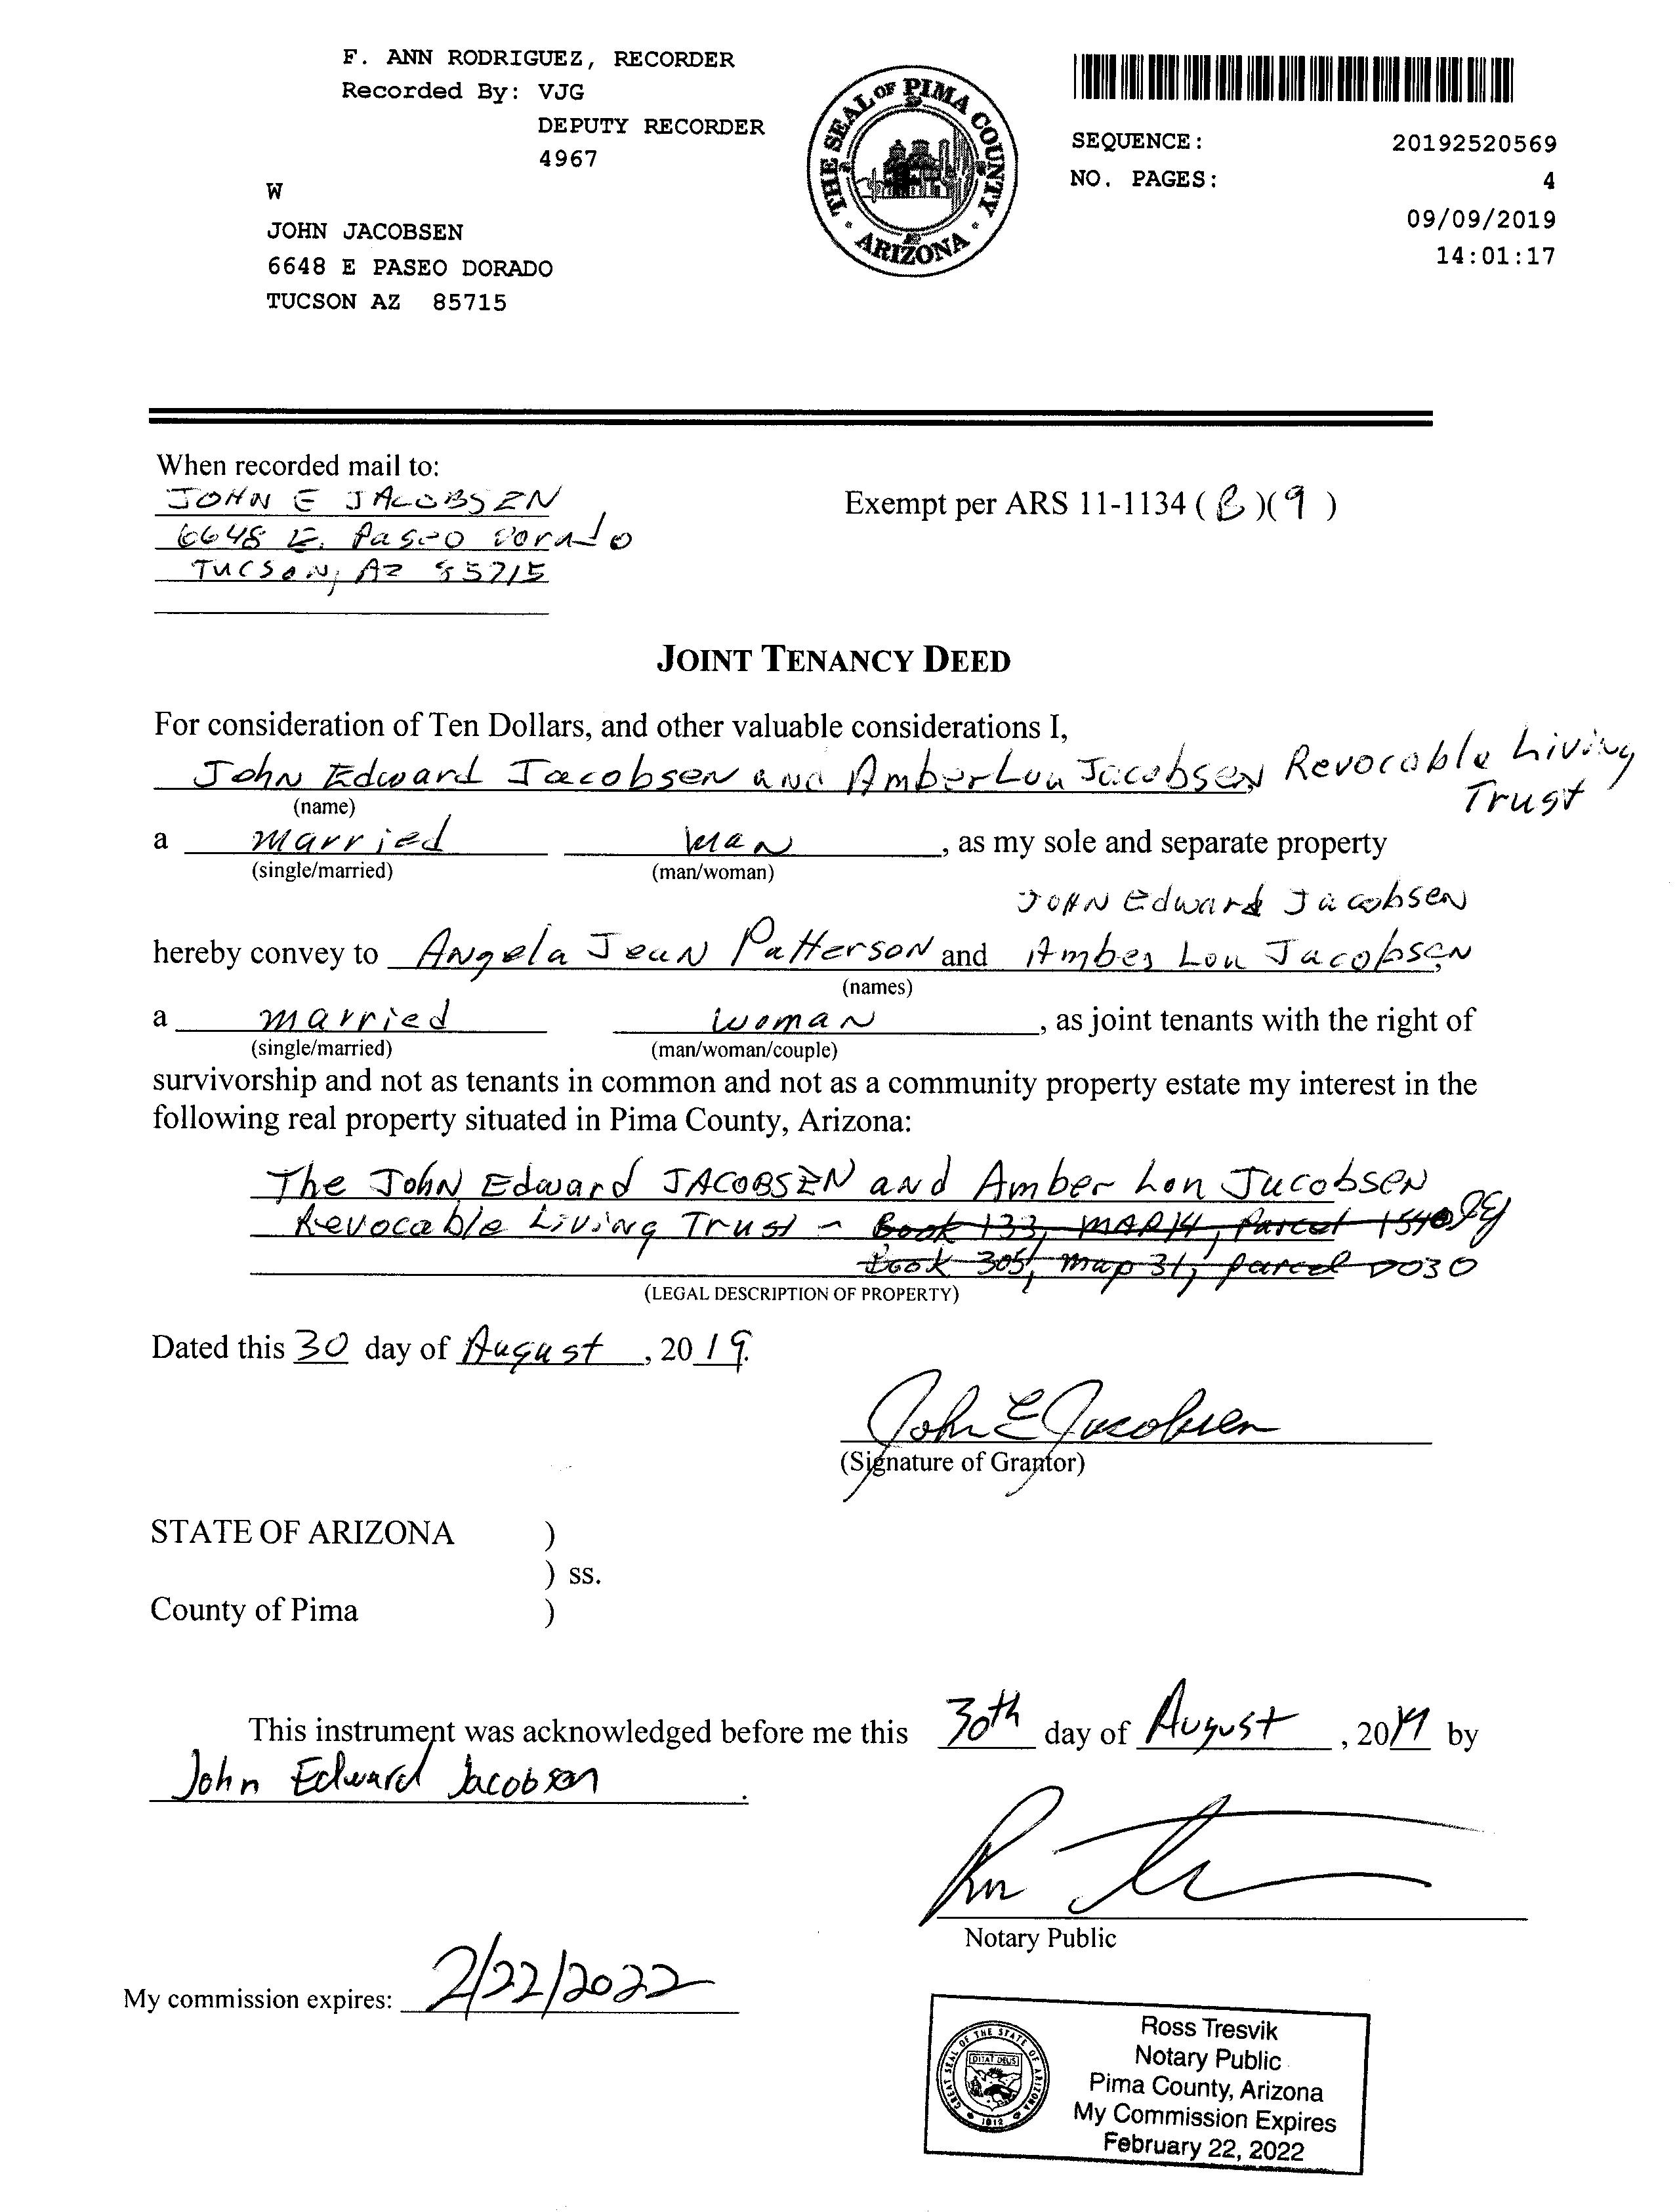 F. ANN RODRIGUEZ, RECORDER
Recorded By: VJG
DEPUTY RECORDER
4967
W
JOHN JACOBSEN
6648 E PASEO DORADO
TUCSON AZ 85715
THE SEAL OF PIMA COUNTY
ARIZONA
SEQUENCE: 20192520569
NO. PAGES: 4
09/09/2019
14:01:17
When recorded mail to:
JOHN E JACOBSEN
6648 E. Paseo Dorado
TUCSON, AZ 85715
Exempt per ARS 11-1134 ( B )( 9 )
JOINT TENANCY DEED
For consideration of Ten Dollars, and other valuable considerations I,
John Edward Jacobsen and Amber Lou Jacobsen Revocable Living
Trust
(name)
a married man, as my sole and separate property
(single/married) (man/woman)
JOHN Edward Jacobsen
hereby convey to Angela Jean Patterson and Amber Lou Jacobsen
(names)
a married woman, as joint tenants with the right of
(single/married) (man/woman/couple)
survivorship and not as tenants in common and not as a community property estate my interest in the
following real property situated in Pima County, Arizona:
The John Edward JACOBSEN and Amber Lou Jacobsen
Revocable Living Trust - Book 133, MAP 14, Parcel 1540
Book 305, Map 31, parcel 0030
(LEGAL DESCRIPTION OF PROPERTY)
Dated this 30 day of August, 2019.
John E Jacobsen
(Signature of Grantor)
STATE OF ARIZONA )
) ss.
County of Pima )
This instrument was acknowledged before me this 30th day of August, 2019 by
John Edward Jacobsen.
Notary Public
My commission expires: 2/22/2022
GREAT SEAL OF THE STATE OF ARIZONA
DITAT DEUS
1912
Ross Tresvik
Notary Public
Pima County, Arizona
My Commission Expires
February 22, 2022